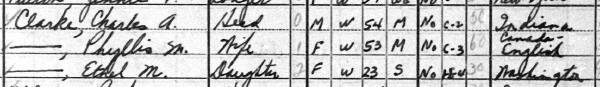 Clarke, Charles A. Head 0 M W 54 M No C-2 50 Indiana
——, Phyllis M. Wife 1 F W 53 M No C-3 60 Canada-English
——, Ethel M. Daughter 2 F W 23 S No H-4 30 Washington